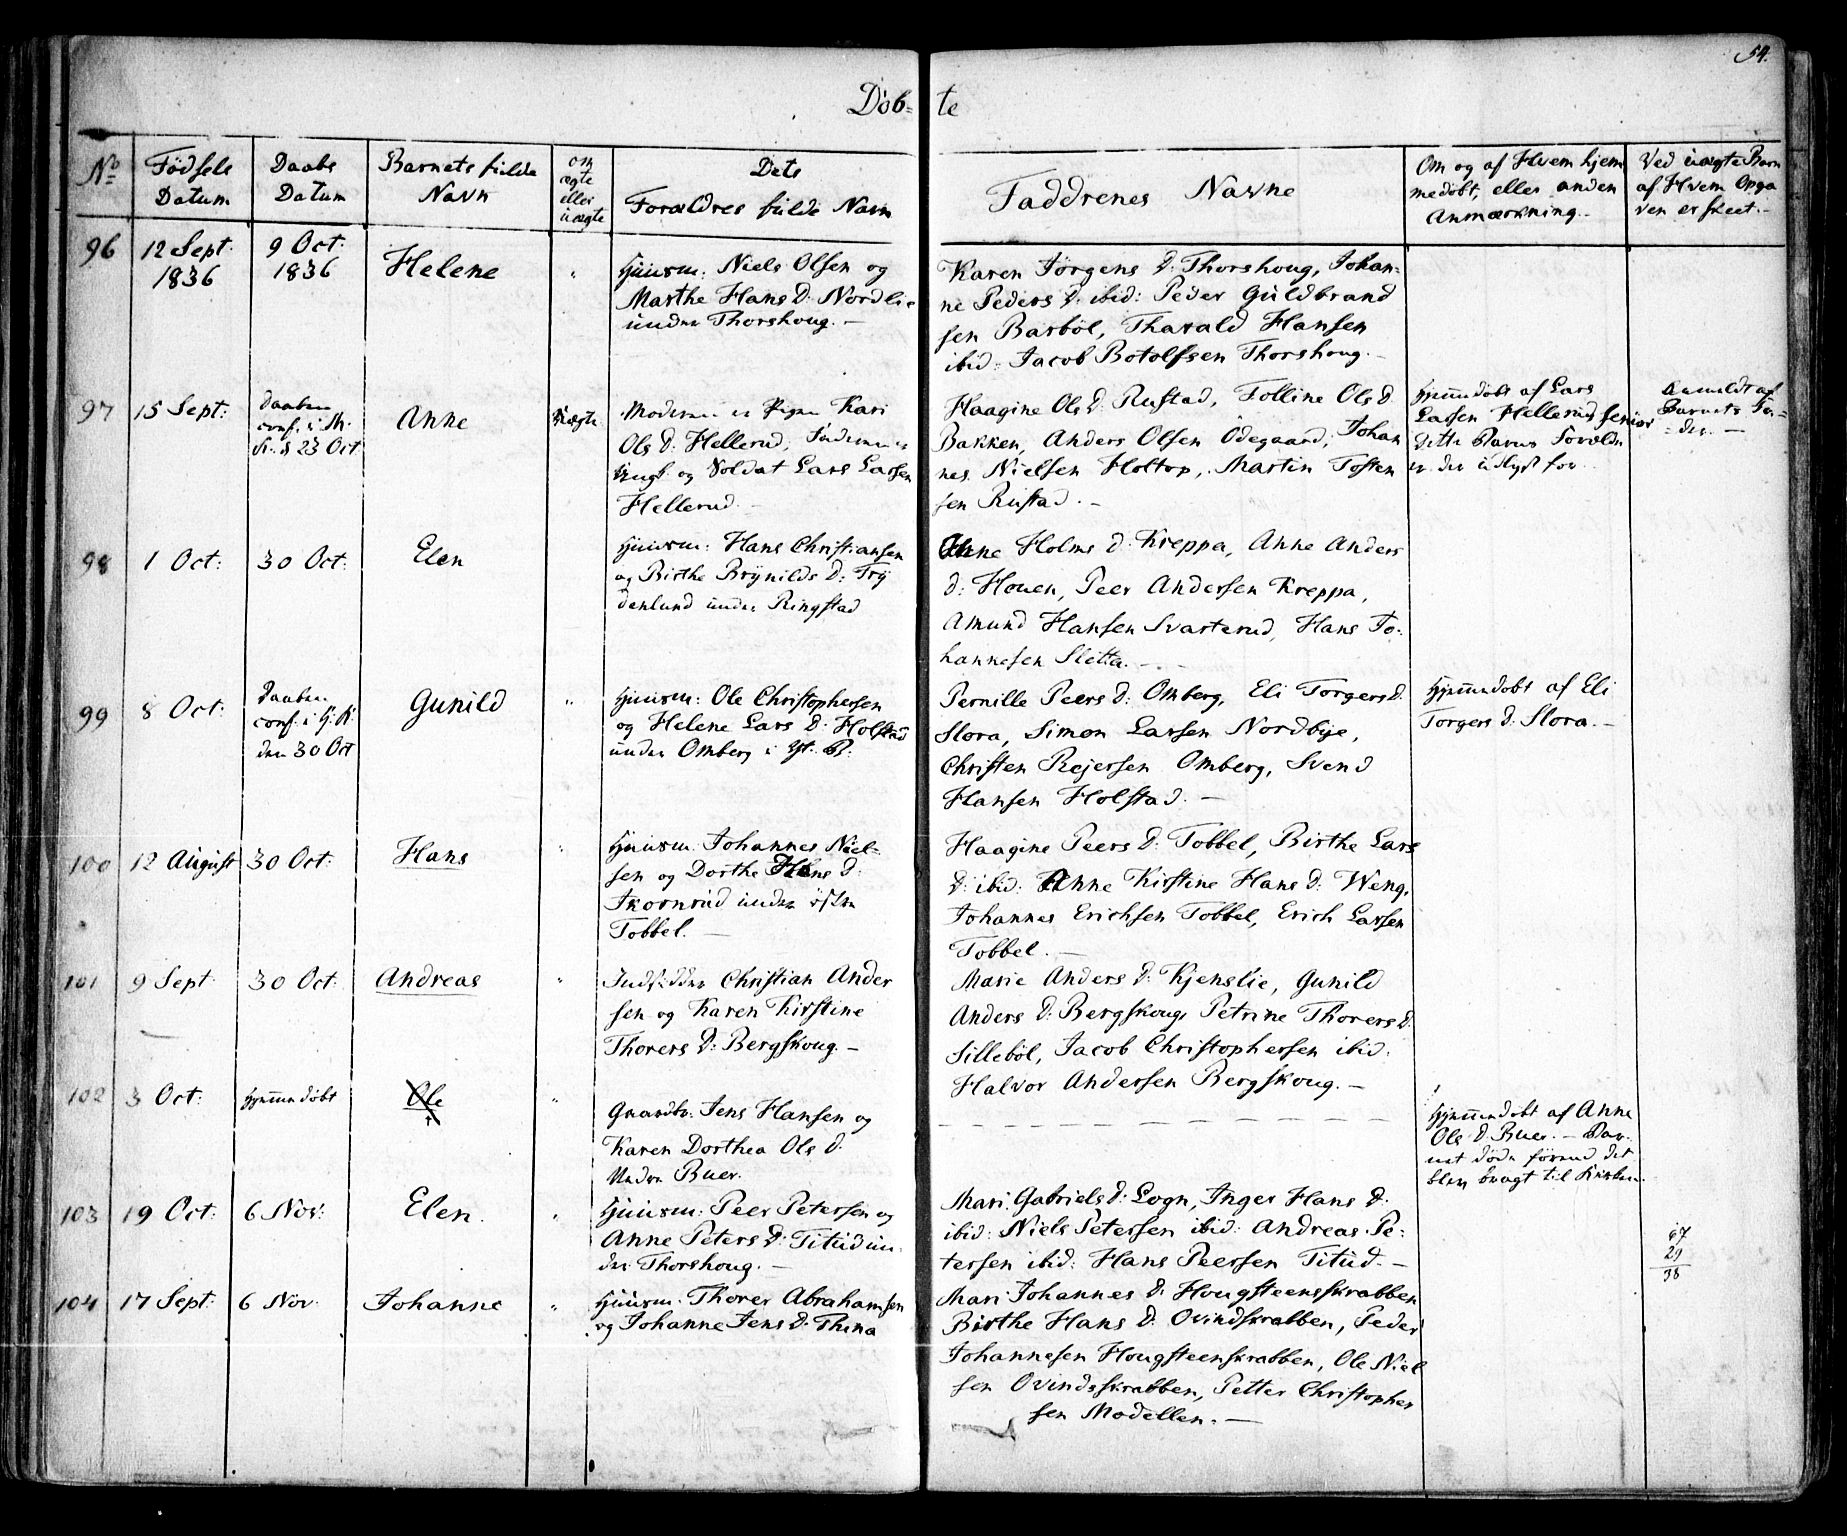 54.
Döb- te
No
Födsels Datum
Daabs Datum
Barnets fulde Navn
om ægte eller uægte
Dets Forældres fulde Navn
Faddrenes Navne
Om og af Hvem hjem
medöbt, eller anden
Anmærkning.
Ved uægte Barn
af Hvem Opga
ven er skeet.-
96
12 Sept.
1836
9 Oct.
1836
Helene
"
Huusm: Niels Olsen og
Marthe Hans D: Nordlie
under Thorshoug. -
Karen Jörgens D: Thorshoug, Johan-
ne Peders D. ibid: Peder Guldbrand
sen Barböl, Tharald Hansen
ibid: Jacob Botolfsen Thorshoug. -
97
15 Sept:
Daaben
conf. i
K. d 23 Oct
Anne
Uægte
Moderen er Pigen Kari
Ols D. Hellerud,
Ungk. og Soldat Lars Larsen
Hellerud. -
Haagine Ols D: Rustad, Tolline Ols D
Bakken, Anders Olsen Ödegaard, Johan
nes Nielsen Holtop, Martin Tosten
sen Rustad. -
Hjemmedöbt af Lars
Larsen Hellerud senior
dette Barns Forældre
er der udlyst for
Anmeldt af
Barnets Fa-
der. -
98
1 Oct:
30 Oct:
Elen
Huusm: Hans Christiansen
og Birthe Brynilds D: Try
denlund under Ringstad
Anne Holms D: Kreppa, Anne Anders
D: Houen, Peer Andersen Kreppa,
Amund Hansen Svarterud, Hans Jo-
hannesen Sletta. -
99
8 Oct:
Daaben
conf. i H. K.
den 30 Oct
Gunild
"
Huusm: Ole Christophersen
og Helene Lars D: Holstad
under Omberg i
Pernille Peers D: Omberg, Eli Torgers D:
Slora, Simon Larsen Nordbye,
Christen Rejersen Omberg, Svend
Hansen Holstad. -
Hjemmedöbt af Eli
Torgers D: Slora. -
100
12 August
30 Oct:
Hans
"
Huusm. Johannes Niel-
sen og Dorthe Hans D:
Skovrud under östre
Tobbel. -
Haagine Peers D: Tobbel, Birthe Lars
D: ibid: Anne Kirstine Hans D: Weng,
Johannes Erichsen Tobbel, Erich Larsen
Tobbel. -
101
9 Sept
30 Oct:
Andreas
"
Indsidder Christian Ander
sen og Karen Kirstine
Thorers D: Bergskoug. -
Marie Anders D: Kjenslie, Gunild
Anders D: Bergskoug, Petrine Thorers D:
Silleböl, Jacob Christophersen ibid:
Halvor Andersen Bergskoug. -
102
3 Oct:
Hjemmedöbt
Ole
"
Gaardbr. Jens Hansen og
Karen Dorthea Ols D.
Nedre Buer.
Hjemmedöbt af Anne
Ols D. Buer. - Bar-
net döde förend det
blev bragt til Kirken.
103
19 Oct:
6 Nov:
Elen.
"
Huusm: Peer Petersen og
Anne Peters D: Titud un-
der Thorshoug. -
Mari Gabriels D: Logn, Inger Hans D.
ibid: Niels Petersen ibid: Andreas Pe-
tersen ibid: Hans Peersen Titud. -
67
29
38
104
17 Sept:
6 Nov.
Johanne
"
Huusm. Thorer Abrahamsen
og Johanne Jens D. Thina
Mari Johannes D. Hougsteensskrabben
Birthe Hans D. Ovindskrabben, Peder
Johannesen Hougsteenskrabben, Ole Niel
sen Ovindsskrabben, Petter Christopher
sen Modellen. -